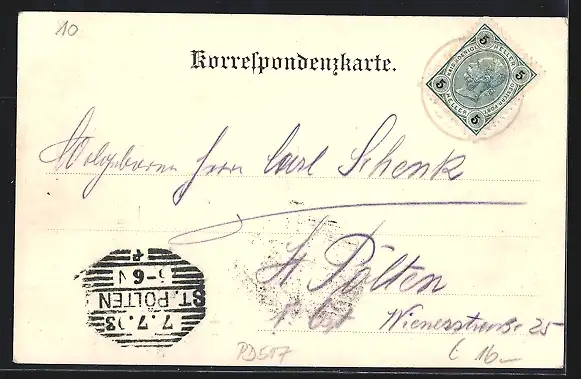 10
Korrespondenzkarte.
5 5 5 5
HELLER HELLER
Wolgeboren Herrn Carl Schenk
St Pölten
Wienerstraße 25
ST. PÖLTEN
7.7.03
5-6N
PD517
16-